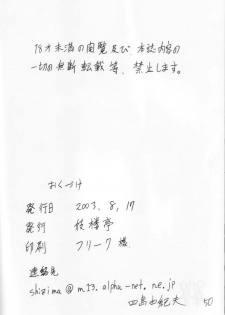 18才未満の閲覧及び本誌内容の
一切の無断転載等、禁止します。
おくづけ
発行日 2003.8.17
発行 伎楼亭
印刷 フリーク様
連絡先
shizima@mt3.alpha-net.ne.jp
四島由紀夫
50